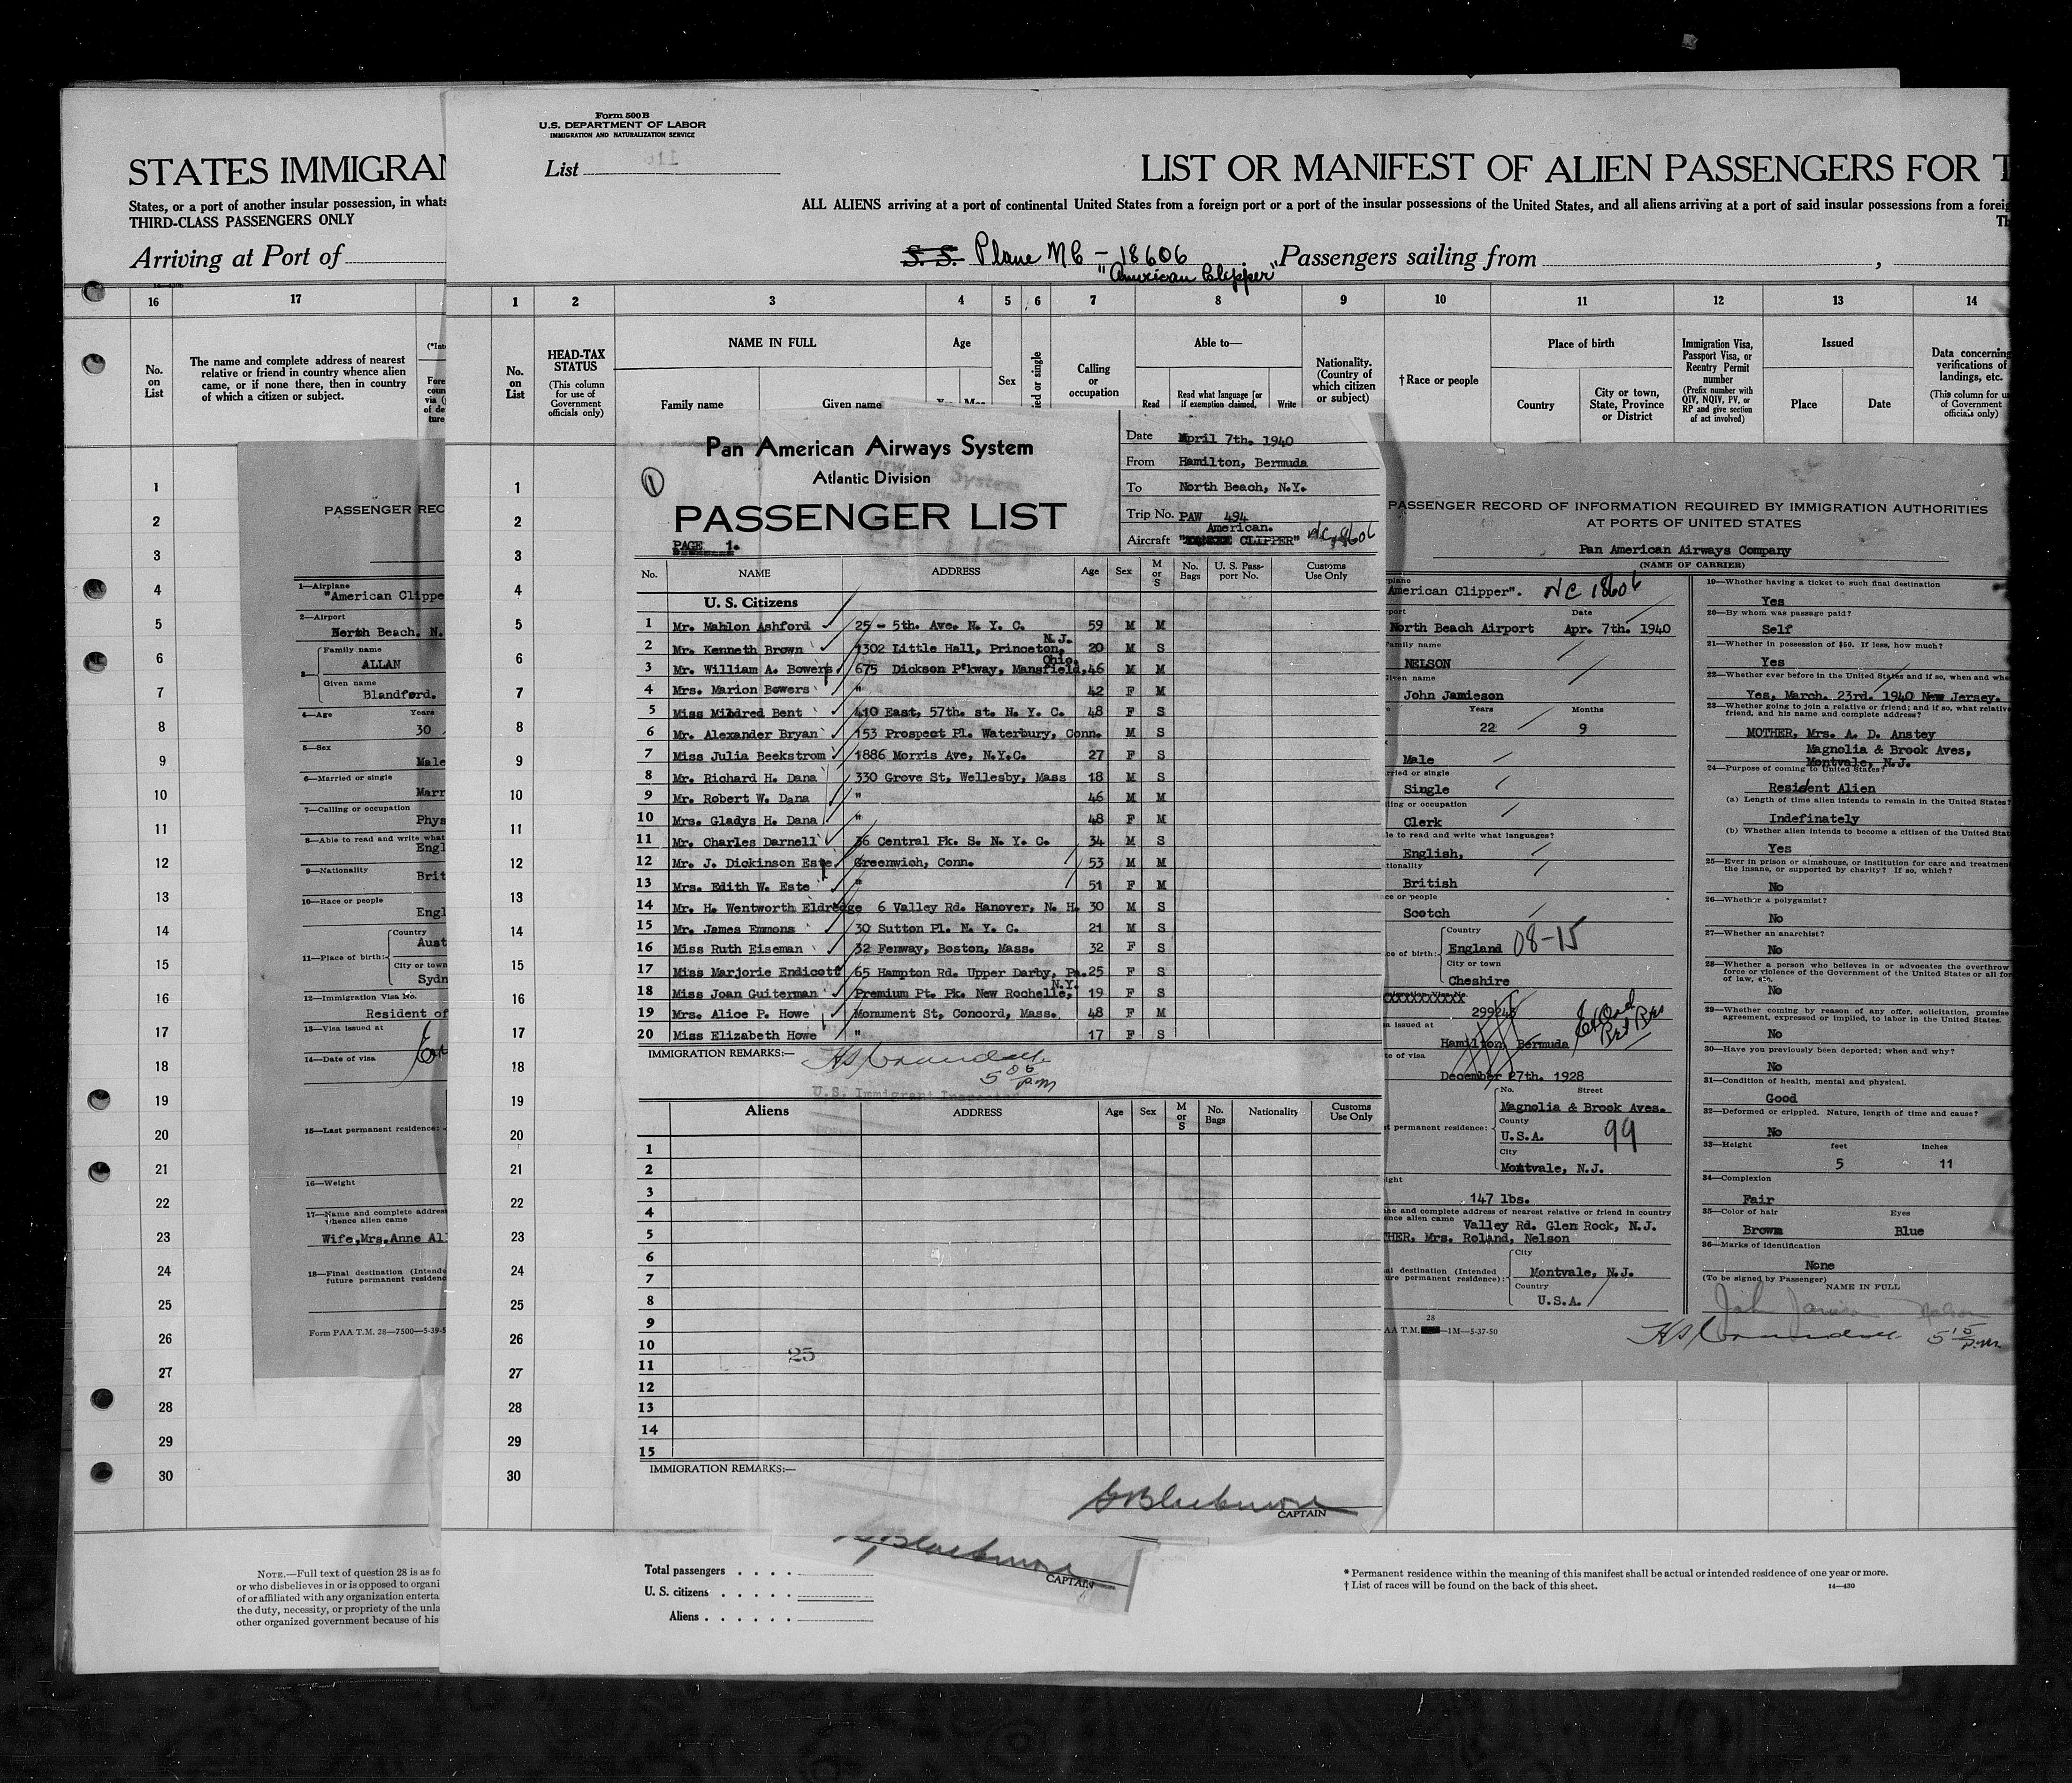 STATES IMMIGRAN
States, or a port of another insular possession, in whats
THIRD-CLASS PASSENGERS ONLY
Arriving at Port of
16 17
No. on List
The name and complete address of nearest
relative or friend in country whence alien
came, or if none there, then in country
of which a citizen or subject.
1
2
3
4
5
6
7
8
9
10
11
12
13
14
15
16
17
18
19
20
21
22
23
24
25
26
27
28
29
30
PASSENGER REC
1—Airplane
"American Clippe
2—Airport
North Beach, N.
3 Family name
ALLAN
Given name
Blandford.
4—Age Years
30
5—Sex
Male
6—Married or single
Marr
7—Calling or occupation
Phys
8—Able to read and write what
Engl
9—Nationality
Brit
10—Race or people
Engl
11—Place of birth: Country
Aust
City or town
Sydn
12—Immigration Visa No.
Resident of
13—Visa issued at
14—Date of visa
15—Last permanent residence:
16—Weight
17—Name and complete address
whence alien came
Wife,Mrs.Anne Al
18—Final destination (Intende
future permanent residenc
Form PAA T.M. 28—7500—5-39-5
NOTE.—Full text of question 28 is as fo
or who disbelieves in or is opposed to organi
of or affiliated with any organization enterta
the duty, necessity, or propriety of the unla
other organized government because of his
Form 500 B
U.S. DEPARTMENT OF LABOR
IMMIGRATION AND NATURALIZATION SERVICE
List
LIST OR MANIFEST OF ALIEN PASSENGERS FOR T
ALL ALIENS arriving at a port of continental United States from a foreign port or a port of the insular possessions of the United States, and all aliens arriving at a port of said insular possessions from a foreig
Th
S. S. Plane NC - 18606 Passengers sailing from ,
"American Clipper"
1 2 3 4 5 6 7 8 9 10 11 12 13 14
No. on List
HEAD-TAX STATUS
(This column for use of Government officials only)
NAME IN FULL
Family name Given name
Age
Yrs. Mos.
Sex
ied or single
Calling or occupation
Able to—
Read Read what language [or if exemption claimed, Write
Nationality. (Country of which citizen or subject)
† Race or people
Place of birth
Country City or town, State, Province or District
Immigration Visa, Passport Visa, or Reentry Permit number
(Prefix number with QIV, NQIV, PV, or RP and give section of act involved)
Issued
Place Date
Data concerning verifications of landings, etc.
(This column for us of Government officials only)
1
2
3
4
5
6
7
8
9
10
11
12
13
14
15
16
17
18
19
20
21
22
23
24
25
26
27
28
29
30
Pan American Airways System
Atlantic Division
PASSENGER LIST
PAGE 1.
1
Date April 7th. 1940
From Hamilton, Bermuda
To North Beach, N.Y.
Trip No. PAW 494
American.
Aircraft " CLIPPER" NC 18606
No. NAME ADDRESS Age Sex M or S No. Bags U. S. Pass- port No. Customs Use Only
U. S. Citizens
1 Mr. Mahlon Ashford 25 - 5th. Ave. N. Y. C. 59 M M
2 Mr. Kenneth Brown 1302 Little Hall, Princeton, N.J. 20 M S
3 Mr. William A. Bowers 675 Dickson P'kway, Mansfield, Ohio. 46 M M
4 Mrs. Marion Bowers " 42 F M
5 Miss Mildred Bent 410 East, 57th. st. N. Y. C. 48 F S
6 Mr. Alexander Bryan 153 Prospect Pl. Waterbury, Conn. M S
7 Miss Julia Beekstrom 1886 Morris Ave, N.Y.C. 27 F S
8 Mr. Richard H. Dana 330 Grove St, Wellesby, Mass 18 M S
9 Mr. Robert W. Dana " 46 M M
10 Mrs. Gladys H. Dana " 48 F M
11 Mr. Charles Darnell 36 Central Pk. S. N. Y. C. 34 M S
12 Mr. J. Dickinson Este Greenwich, Conn. 53 M M
13 Mrs. Edith W. Este " 51 F M
14 Mr. H. Wentworth Eldredge 6 Valley Rd. Hanover, N. H. 30 M S
15 Mr. James Emmons 30 Sutton Pl. N. Y. C. 21 M S
16 Miss Ruth Eiseman 32 Fenway, Boston, Mass. 32 F S
17 Miss Marjorie Endicott 65 Hampton Rd. Upper Darby, Pa. 25 F S
18 Miss Joan Guiterman Premium Pt. Pk. New Rochelle, N.Y. 19 F S
19 Mrs. Alice P. Howe Monument St, Concord, Mass. 48 F M
20 Miss Elizabeth Howe " 17 F S
IMMIGRATION REMARKS:—
5 05 P.M
U.S. Immigrant Inspector
Aliens ADDRESS Age Sex M or S No. Bags Nationality Customs Use Only
1
2
3
4
5
6
7
8
9
10
11
12
13
14
15
25
IMMIGRATION REMARKS:—
GBlackmore
CAPTAIN
Blackmore
CAPTAIN
Total passengers . . . .
U. S. citizens . . . . .
Aliens . . . . . .
* Permanent residence within the meaning of this manifest shall be actual or intended residence of one year or more.
† List of races will be found on the back of this sheet.
14—430
PASSENGER RECORD OF INFORMATION REQUIRED BY IMMIGRATION AUTHORITIES
AT PORTS OF UNITED STATES
Pan American Airways Company
(NAME OF CARRIER)
plane
American Clipper". NC 18606
port Date
North Beach Airport Apr. 7th. 1940
Family name
NELSON
Given name
John Jamieson
Years Months
22 9
Male
rried or single
Single
lling or occupation
Clerk
le to read and write what languages?
English,
tionality
British
ce or people
Scotch
ce of birth: Country
England 08-15
City or town
Cheshire
migration Visa No.
XXXXXXXXXXX
299245
a issued at
Hamilton, Bermuda
te of visa
December 27th. 1928
No. Street
Magnolia & Brook Aves.
t permanent residence: County
U.S.A. 99
City
Montvale, N.J.
ight
147 lbs.
me and complete address of nearest relative or friend in country
ence alien came Valley Rd. Glen Rock, N.J.
THER, Mrs. Roland, Nelson
al destination (Intended
ure permanent residence): City
Montvale, N.J.
Country
U.S.A.
28
AA T.M. —1M—5-37-50
19—Whether having a ticket to such final destination
Yes
20—By whom was passage paid?
Self
21—Whether in possession of $50. If less, how much?
Yes
22—Whether ever before in the United States and if so, when and whe
Yes, March. 23rd. 1940 New Jersey.
23—Whether going to join a relative or friend; and if so, what relative
friend, and his name and complete address?
MOTHER, Mrs. A. D. Anstey
Magnolia & Brook Aves,
Montvale, N.J.
24—Purpose of coming to United States?
Resident Alien
(a) Length of time alien intends to remain in the United States?
Indefinately
(b) Whether alien intends to become a citizen of the United Stat
Yes
25—Ever in prison or almshouse, or institution for care and treatmen
the insane, or supported by charity? If so, which?
No
26—Whether a polygamist?
No
27—Whether an anarchist?
No
28—Whether a person who believes in or advocates the overthrow
force or violence of the Government of the United States or all for
of law, etc.
No
29—Whether coming by reason of any offer, solicitation, promise
agreement, expressed or implied, to labor in the United States.
No
30—Have you previously been deported; when and why?
No
31—Condition of health, mental and physical.
Good
32—Deformed or crippled. Nature, length of time and cause?
No
33—Height feet inches
5 11
34—Complexion
Fair
35—Color of hair Eyes
Brown Blue
36—Marks of identification
None
(To be signed by Passenger) NAME IN FULL
John Jamieson Nelson
5 15 P.M.